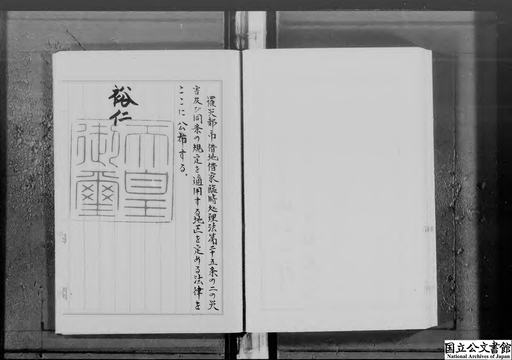 罹災都市借地借家臨時処理法第二十五条の二の災
害及び同条の規定を適用する地区を定める法律を
ここに公布する。
裕仁
天皇
御璽
国立公文書館
National Archives of Japan